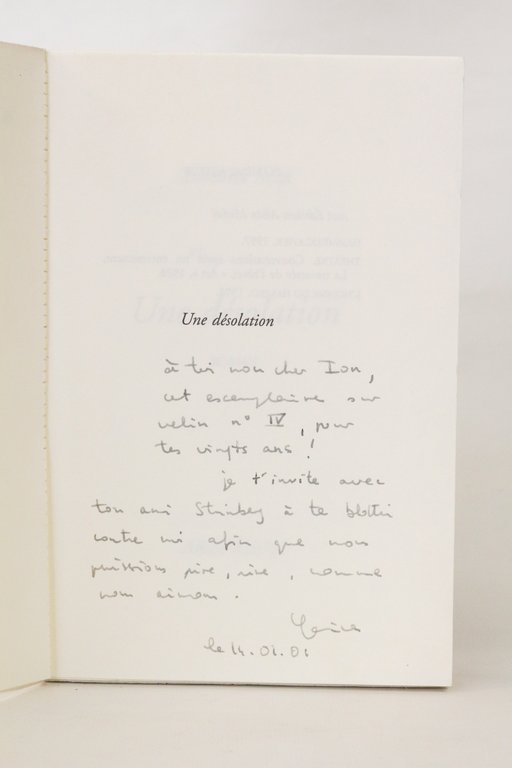 Une désolation
à toi mon cher Ion,
cet exemplaire sur
velin n° IV, pour
tes vingts ans !
je t'invite avec
ton ami Steinberg à te blottir
contre moi afin que nous
puissions rire, rire, comme
nous aimons.
le 14.01.01